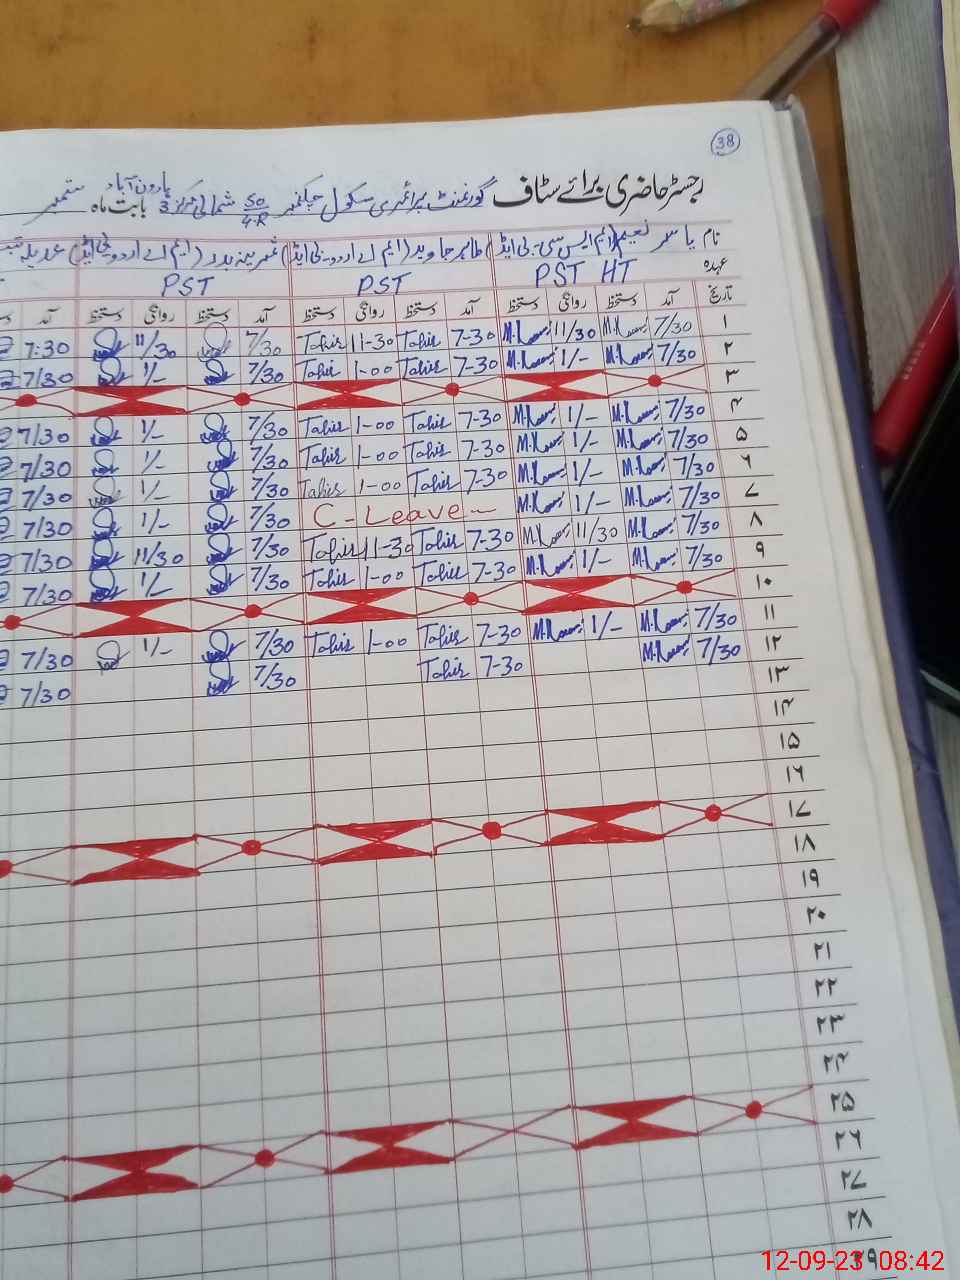 38
رجسٹر حاضری برائے سٹاف گورنمنٹ پرائمری سکول چکنمبر 50/4.R شمالی مرکز 3 ہارون آباد بابت ماہ ستمبر
نام یاسر نعیم (ایم ایس سی۔ بی ایڈ) طاہر جاوید (ایم اے اردو۔ بی ایڈ) ثمرینہ بدر (ایم اے اردو بی ایڈ)
عہدہ PST HT PST PST
تاریخ آمد دستخط روانگی دستخط آمد دستخط روانگی دستخط آمد دستخط روانگی دستخط آمد
۱ 7/30 11/30 7-30 Tahir 11-30 Tahir 7/30 11/30 7:30
۲ 7/30 1/- 7-30 Tahir 1-00 Tahir 7/30 1/- 7/30
۳
۴ 7/30 1/- 7-30 Tahir 1-00 Tahir 7/30 1/- 7/30
۵ 7/30 1/- 7-30 Tahir 1-00 Tahir 7/30 1/- 7/30
۶ 7/30 1/- 7-30 Tahir 1-00 Tahir 7/30 1/- 7/30
۷ 7/30 1/- C-Leave 7/30 1/- 7/30
۸ 7/30 11/30 7-30 Tahir 11-30 Tahir 7/30 11/30 7/30
۹ 7/30 1/- 7-30 Tahir 1-00 Tahir 7/30 1/- 7/30
۱۰
۱۱ 7/30 1/- 7-30 Tahir 1-00 Tahir 7/30 1/- 7/30
۱۲ 7/30 7-30 Tahir 7/30 7/30
۱۳
۱۴
۱۵
۱۶
۱۷
۱۸
۱۹
۲۰
۲۱
۲۲
۲۳
۲۴
۲۵
۲۶
۲۷
۲۸
۲۹
12-09-23 08:42